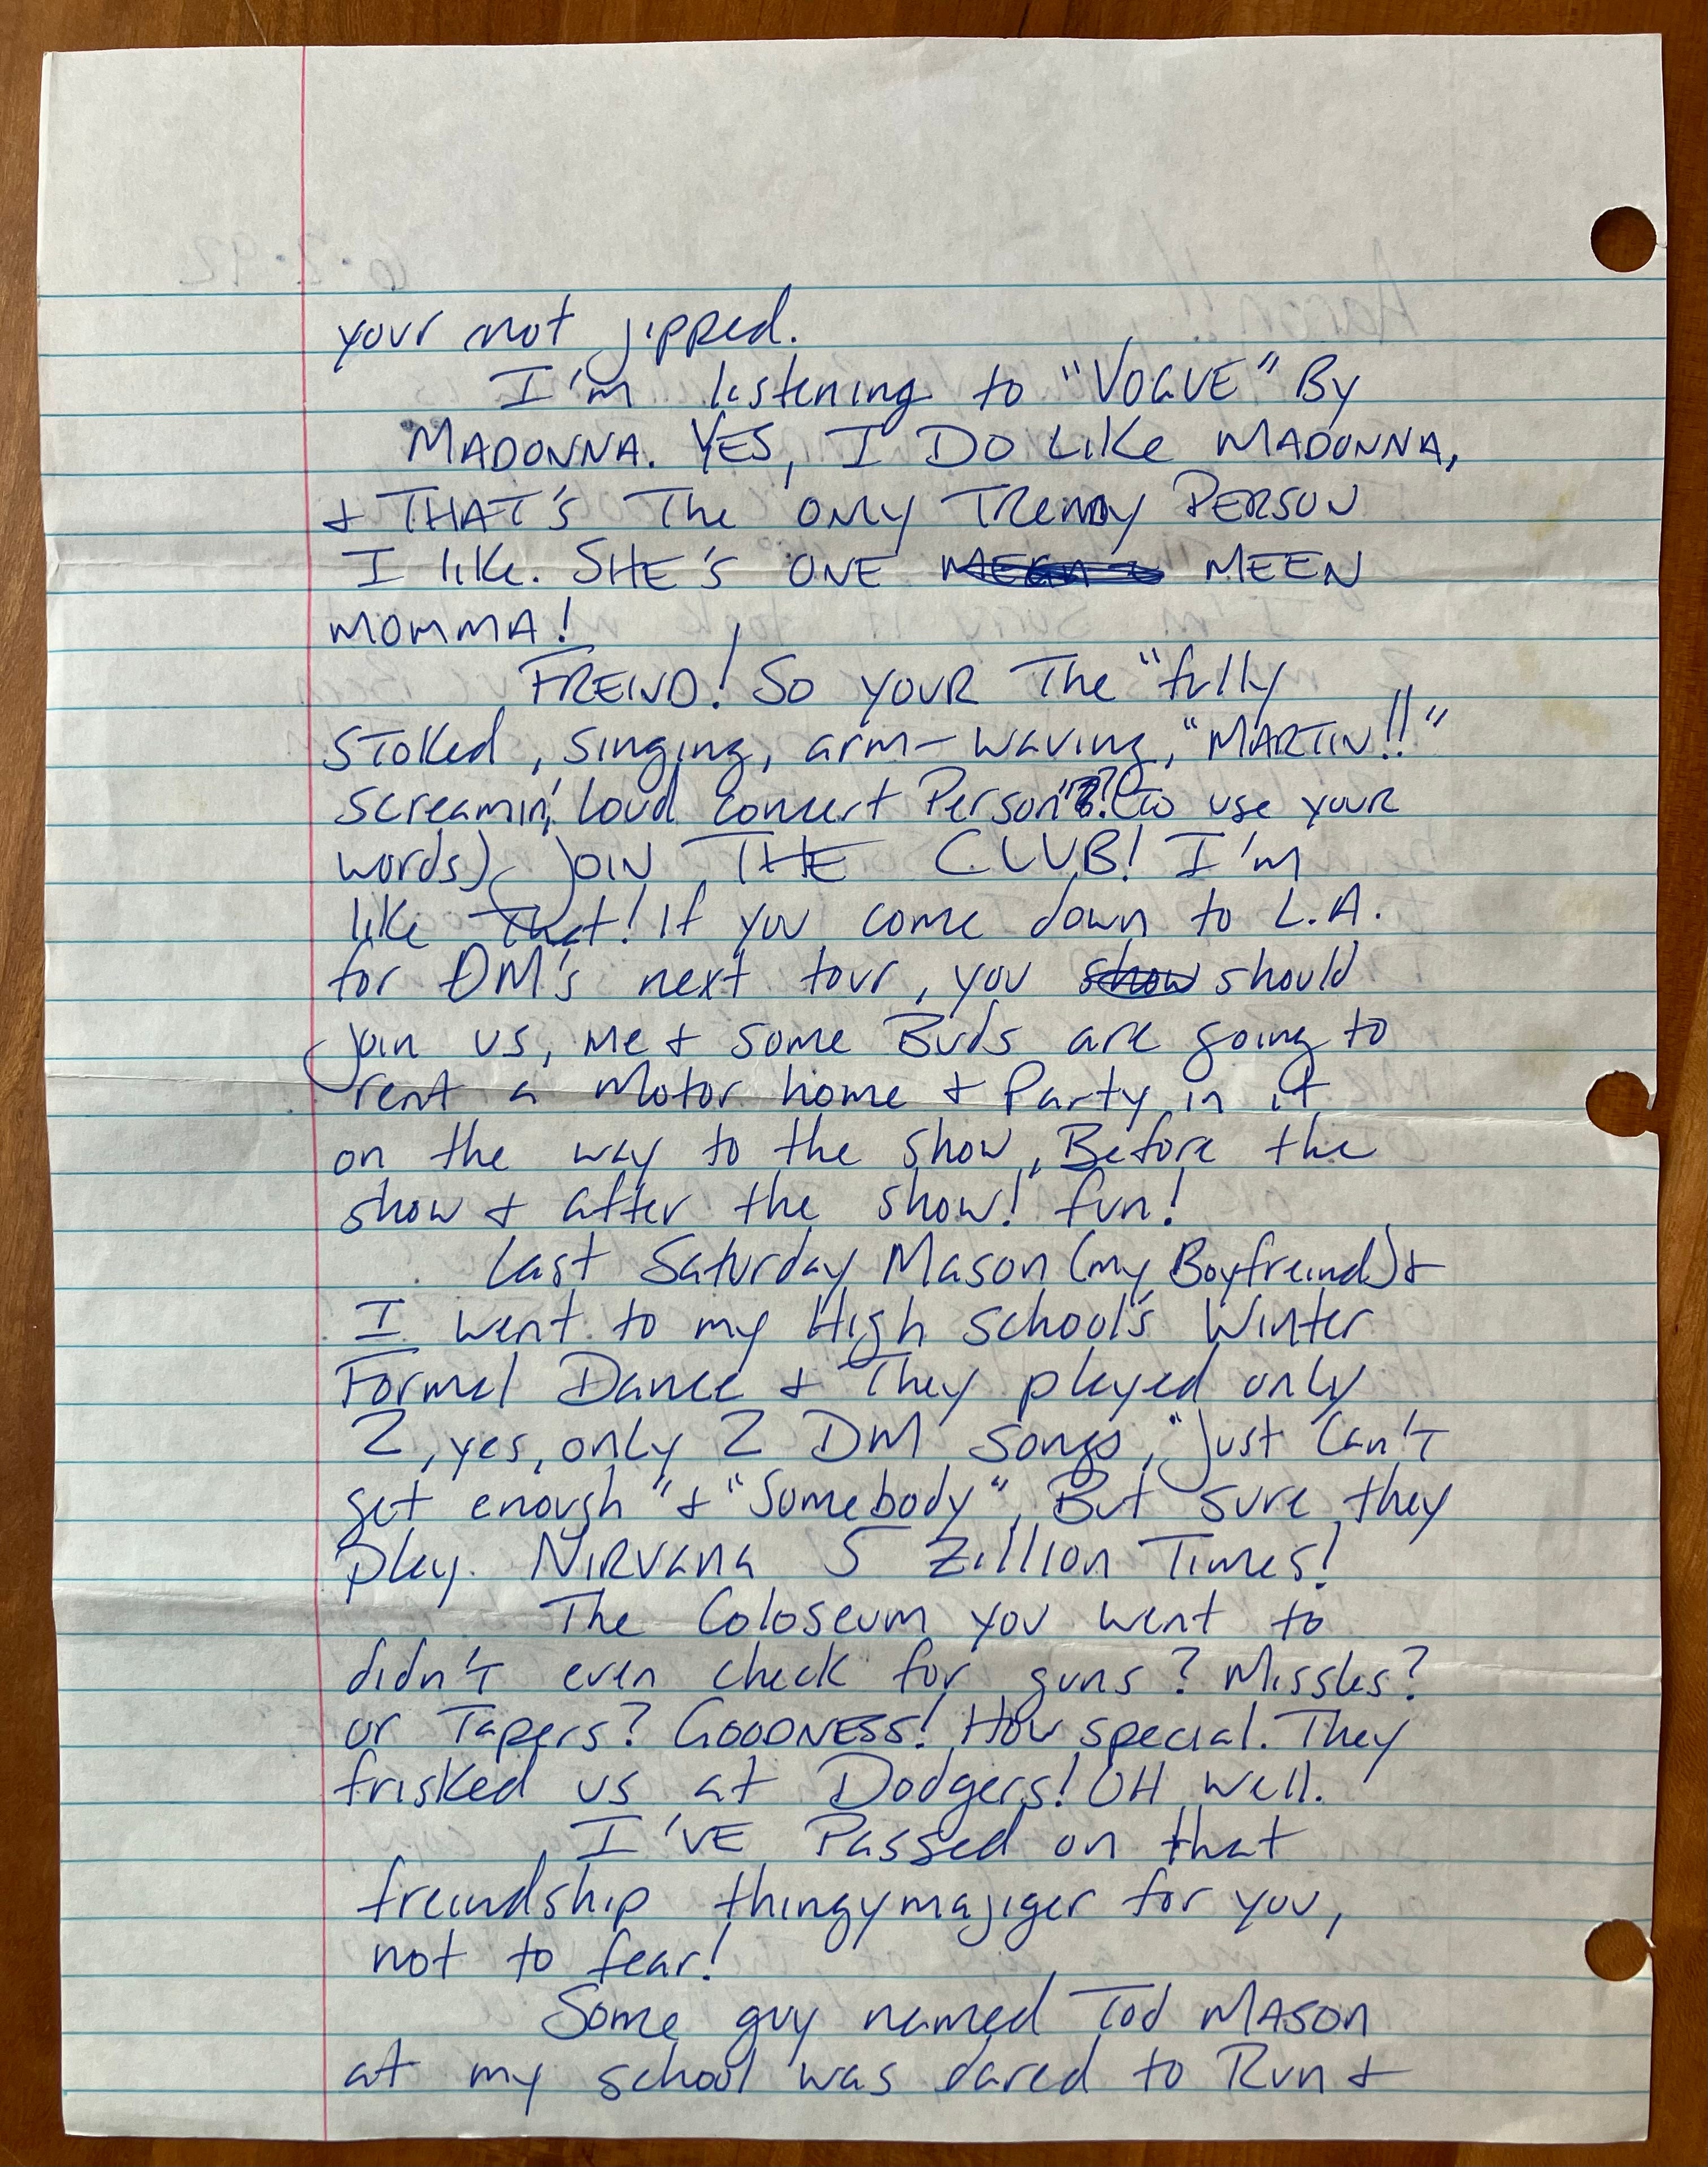 your not jipped.
I'm listening to "VOGUE" By
MADONNA. YES, I DO LIKe MADONNA,
& THAT'S The ONLY TRenDy PERSON
I like. SHE'S ONE MEEN
MOMMA!
FREIND! SO YOUR The "fully
stoked, singing, arm-waving, "MARTIN!!"
screamin', loud concert Person"?! (to use your
words) JOIN THE CLUB! I'm
like that! If you come down to L.A.
for DM's next tour, you show should
join us, me & some Buds are going to
rent a Motor home & Party in it
on the way to the show, Before the
show & after the show! fun!
Last Saturday Mason (my Boyfreind) &
I went to my High school's Winter
Formal Dance & They played only
2, yes, only 2 DM songs, "Just Can't
get enough" & "Somebody", But sure they
play. NIRVana 5 Zillion Times!
The Coloseum you went to
didn't even check for guns? Missles?
or Tapers? GOODNESS! How special. They
frisked us at Dodgers! OH well.
I'VE Passed on that
freindship thingymajiger for you,
not to fear!
Some guy named Tod MASON
at my school was dared to Run &
6.2.92
Aaron!!